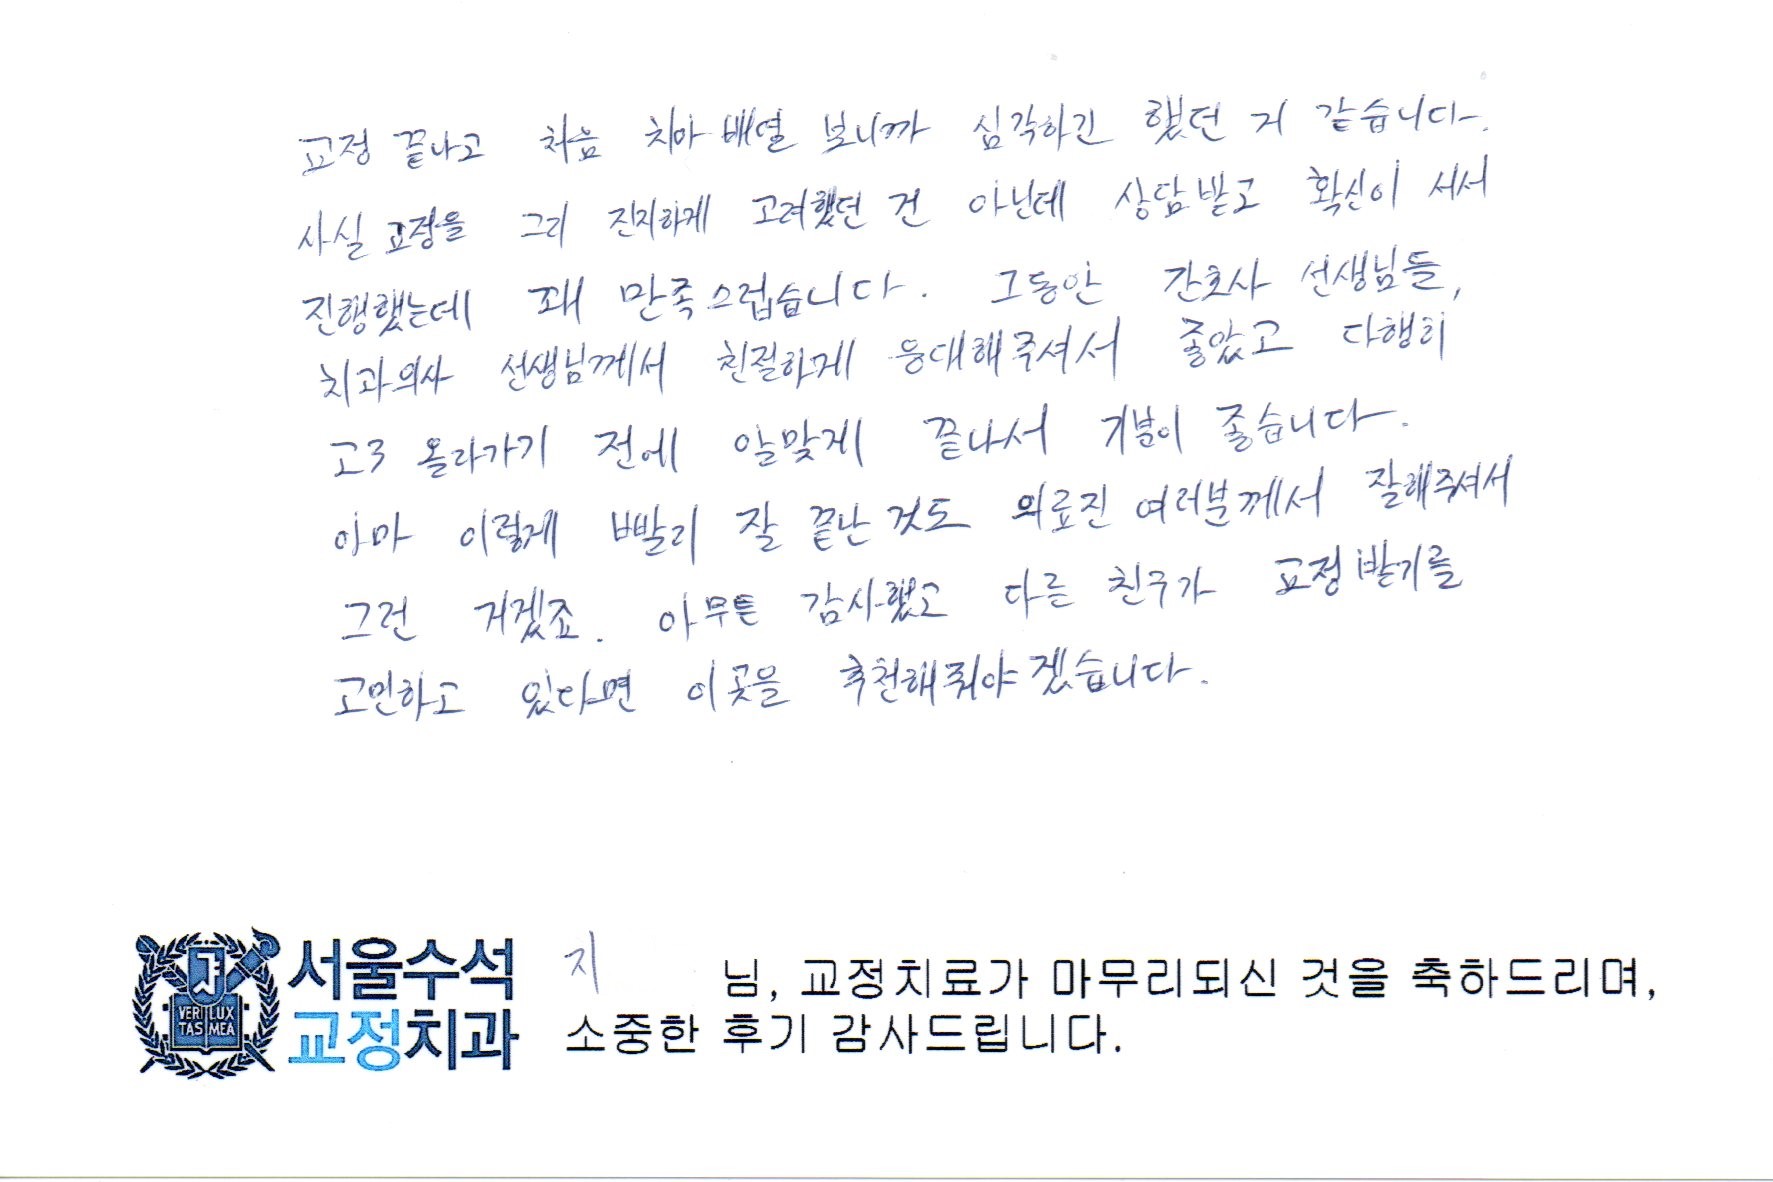 교정 끝나고 처음 치아 배열 보니까 심각하긴 했던 거 같습니다.
사실 교정을 그리 진지하게 고려했던 건 아닌데 상담받고 확신이 서서
진행했는데 꽤 만족스럽습니다. 그동안 간호사 선생님들,
치과의사 선생님께서 친절하게 응대해주셔서 좋았고 다행히
고3 올라가기 전에 알맞게 끝나서 기분이 좋습니다.
아마 이렇게 빨리 잘 끝난 것도 의료진 여러분께서 잘해주셔서
그런 거겠죠. 아무튼 감사했고 다른 친구가 교정 받기를
고민하고 있다면 이곳을 추천해줘야겠습니다.
서울수석
교정치과
VERI LUX
TAS MEA
지 님, 교정치료가 마무리되신 것을 축하드리며,
소중한 후기 감사드립니다.